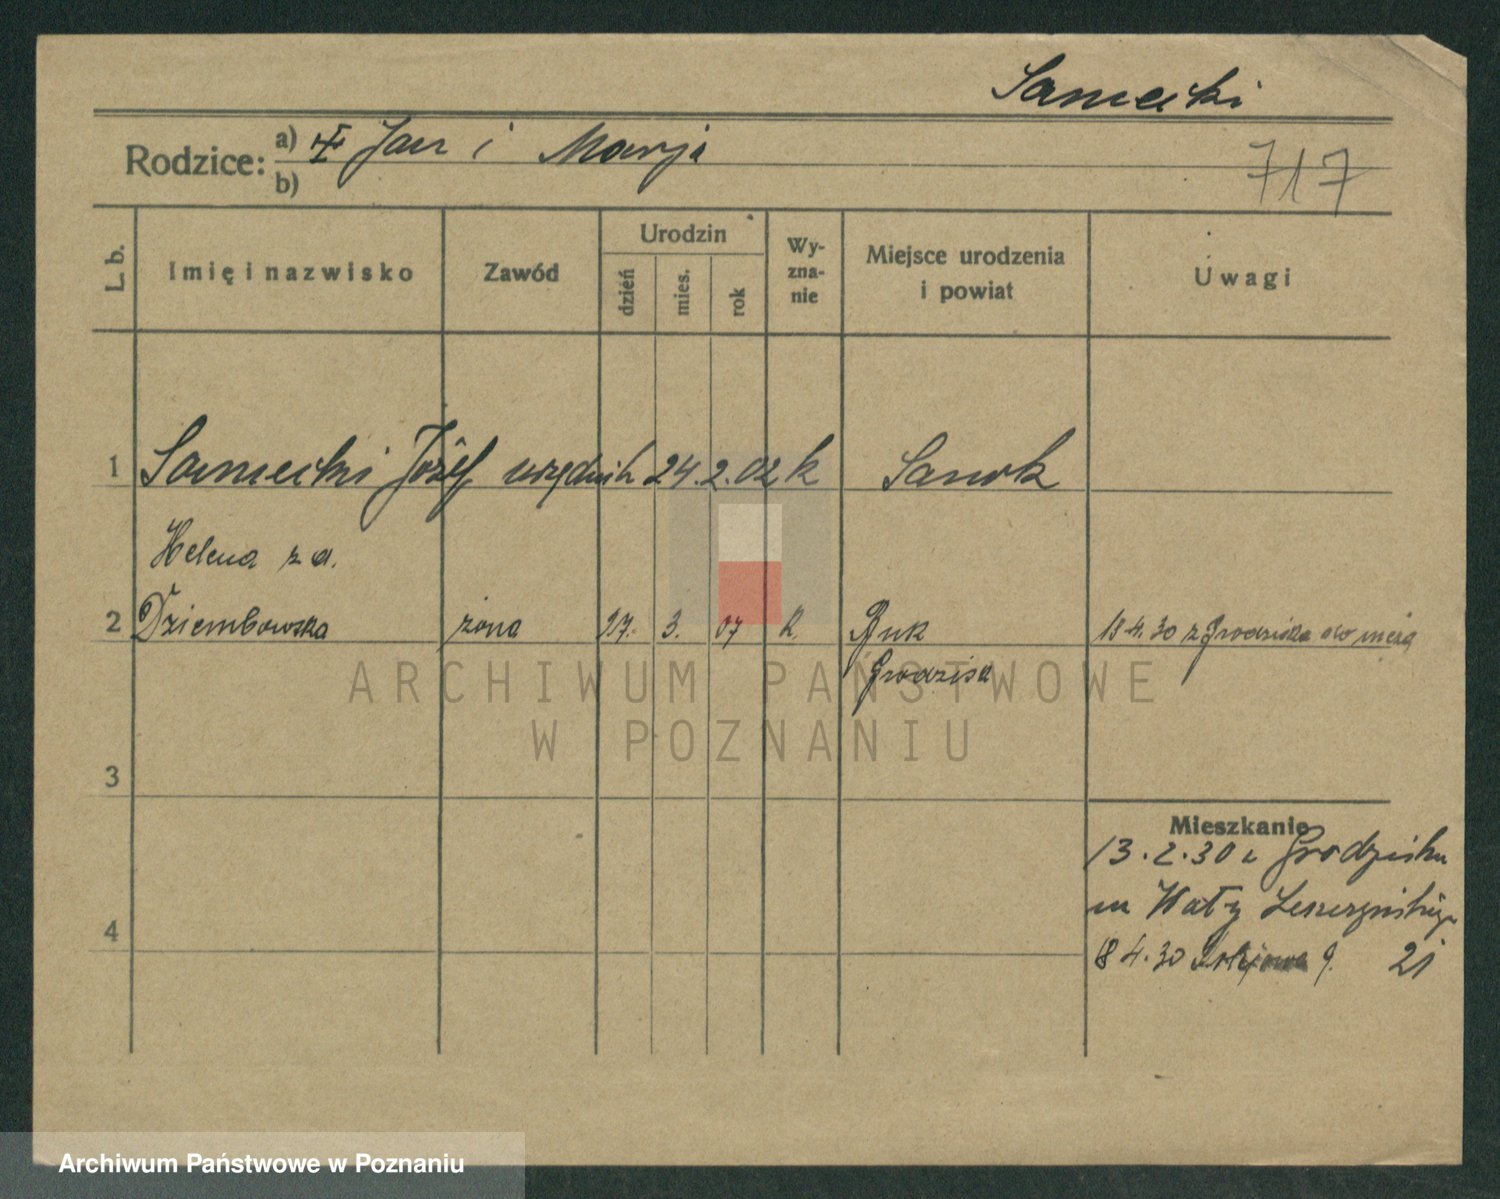 Samecki
Rodzice: a) Jan i Marja
b)
717
L. b.
Imię i nazwisko
Zawód
Urodzin
dzień
mies.
rok
Wy-
zna-
nie
Miejsce urodzenia
i powiat
Uwagi
1 Samecki Józef urzędnik 24.2.02 k Sanok
Helena z d.
2 Dziembowska żona 27. 3. 07 k. Buk 18 4.30 z Grodziska do męża
Grodzisk
ARCHIWUM PAŃSTWOWE
W POZNANIU
3
Mieszkanie
13.2.30 z Grodziska
na Wały Leszczyńskiego
4
18 4.30 9. 21
Archiwum Państwowe w Poznaniu